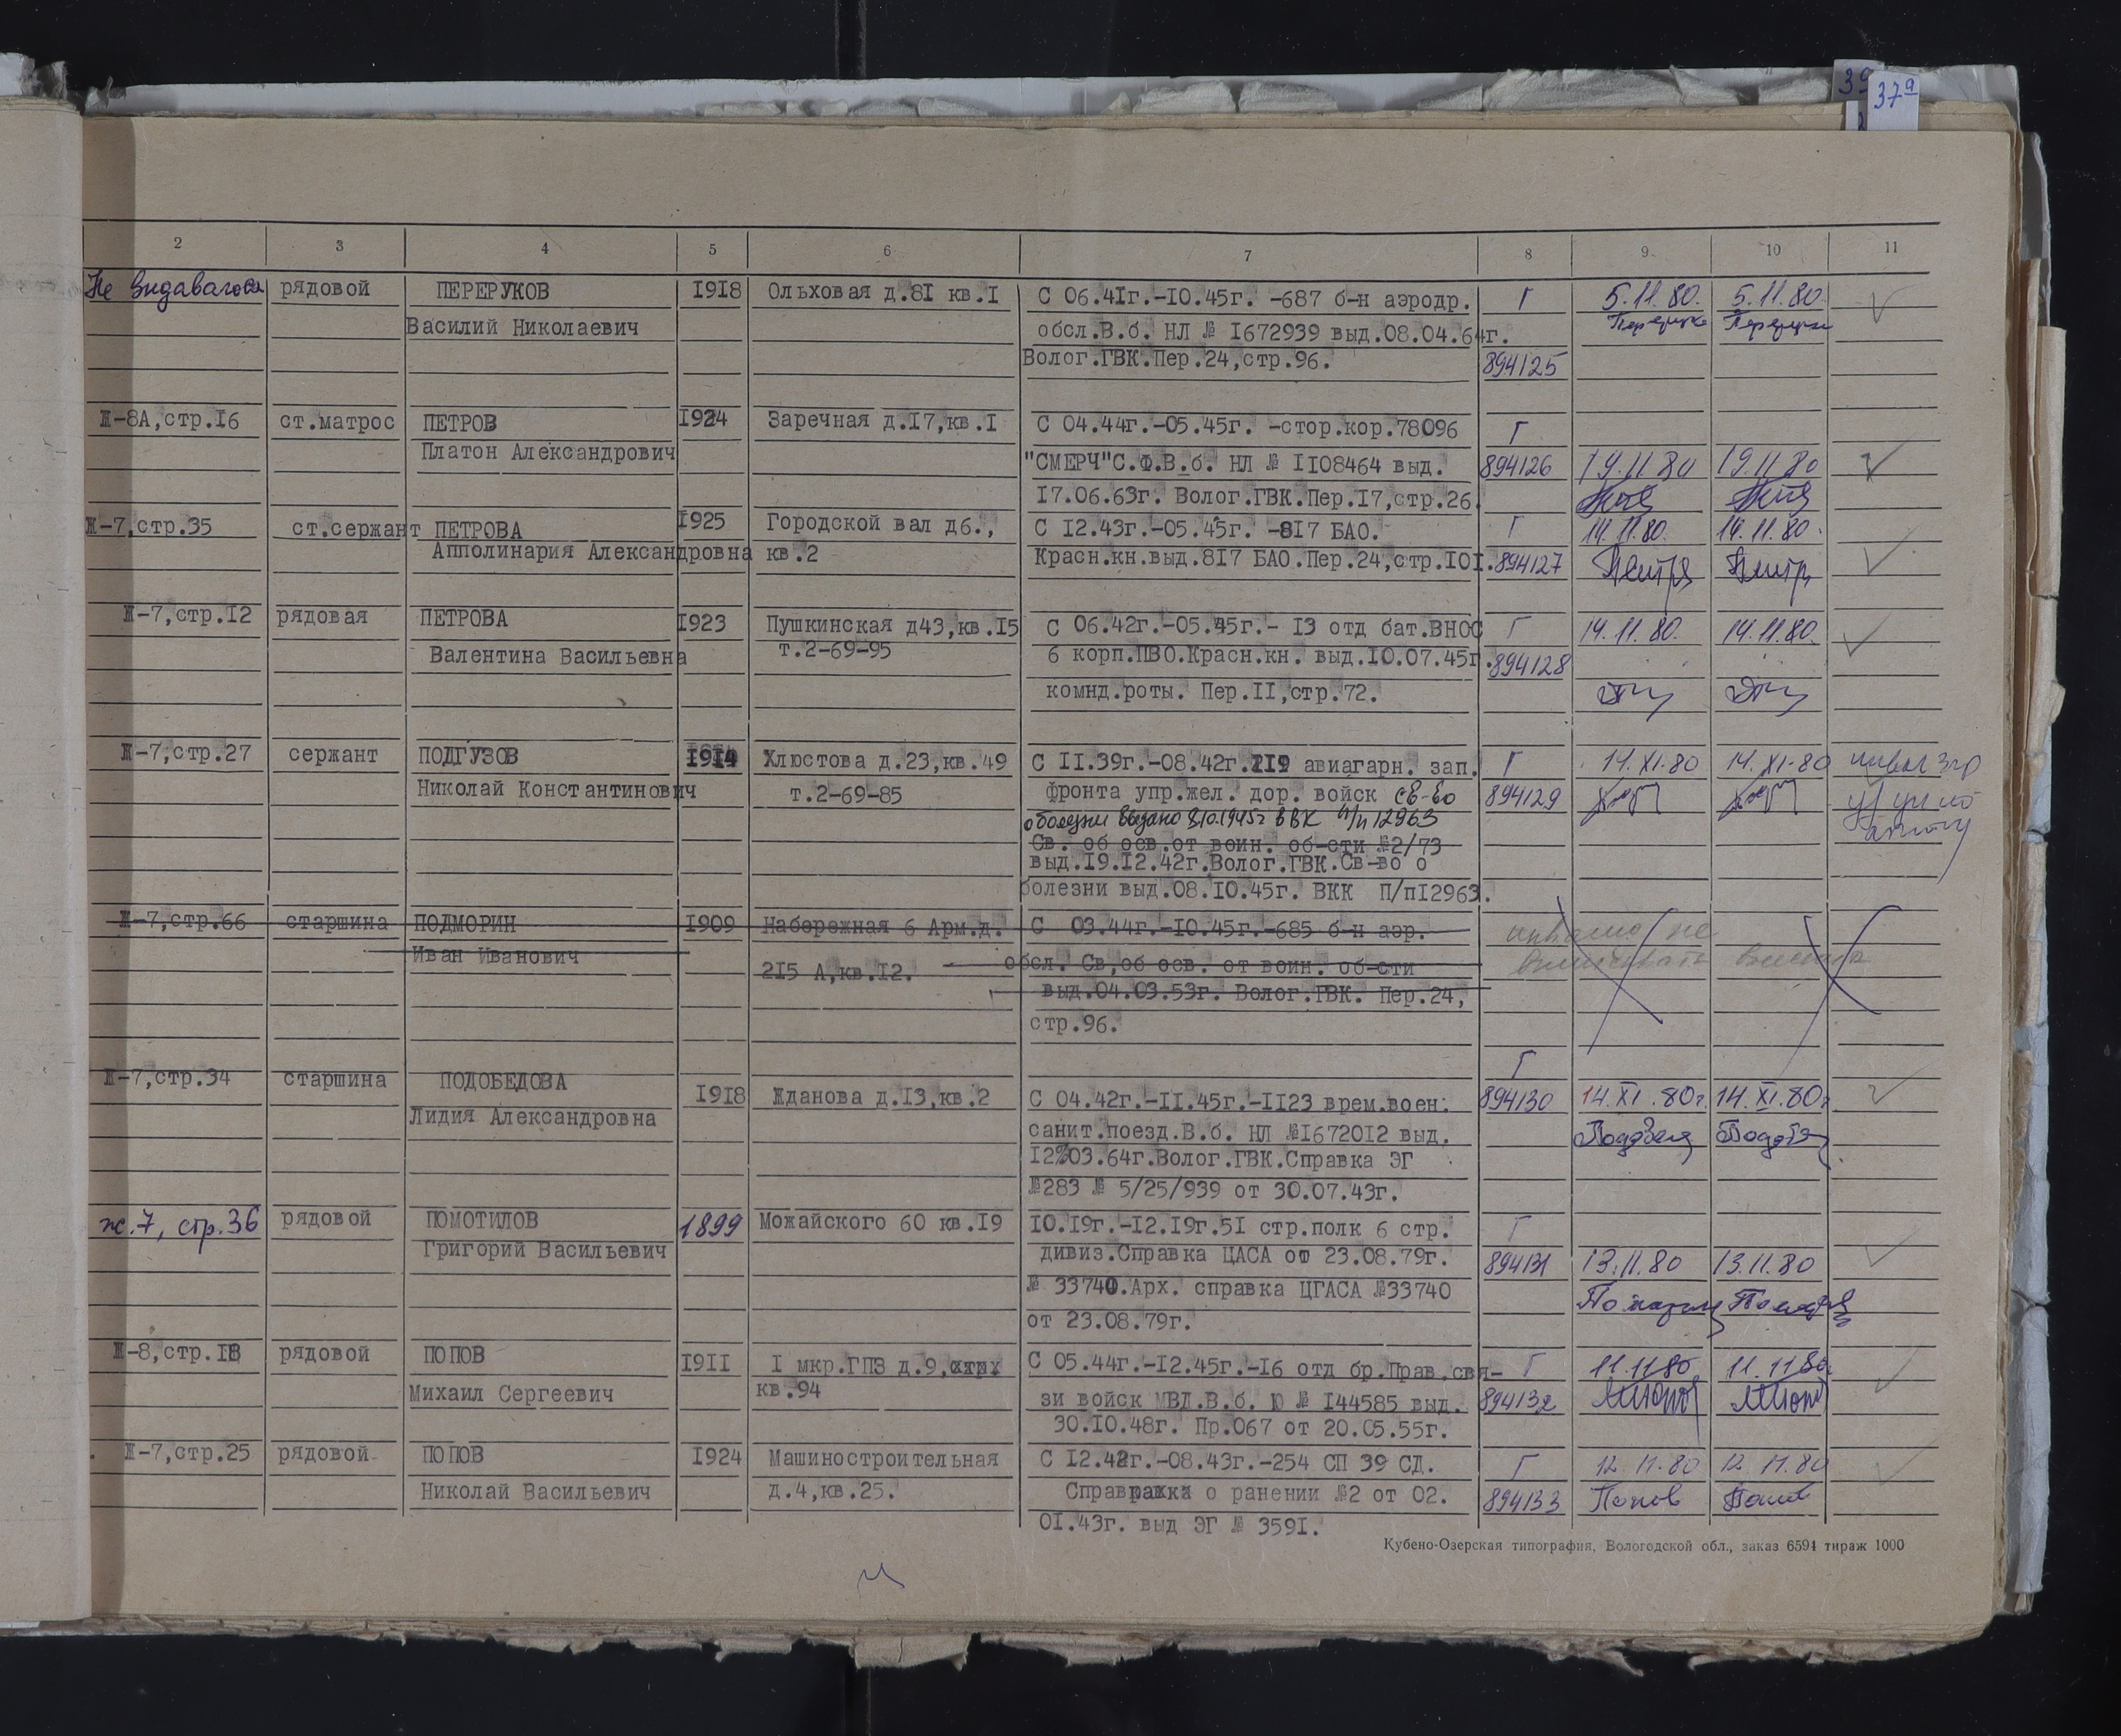 39
37а
2 3 4 5 6 7 8 9. 10 11
Не выдавалось рядовой ПЕРЕРУКОВ 1918 Ольховая д.81 кв.1 С 06.41г.-10.45г. -687 б-н аэродр. Г 5.11.80. 5.11.80.
Василий Николаевич обсл.В.б. НЛ № 1672939 выд.08.04.64г.
Волог.ГВК.Пер.24,стр.96. 894125
Ж-8А,стр.16 ст.матрос ПЕТРОВ 1924 Заречная д.17,кв.1 С 04.44г.-05.45г. -стор.кор.78096 Г
Платон Александрович "СМЕРЧ"С.Ф.В.б. НЛ № 1108464 выд. 894126 19.11 80 19.11 80
17.06.63г. Волог.ГВК.Пер.17,стр.26.
Ж-7,стр.35 ст.сержант ПЕТРОВА 1925 Городской вал д6., С 12.43г.-05.45г. -817 БАО. Г 14.11.80. 14.11.80.
Апполинария Александровна кв.2 Красн.кн.выд.817 БАО.Пер.24,стр.101. 894127
Ж-7,стр.12 рядовая ПЕТРОВА 1923 Пушкинская д43,кв.15 С 06.42г.-05.45г.- 13 отд бат.ВНОС Г 14.11.80. 14.11.80.
Валентина Васильевна т.2-69-95 6 корп.ПВО.Красн.кн. выд.10.07.45г. 894128
комнд.роты. Пер.11,стр.72.
Ж-7,стр.27 сержант ПОДГУЗОВ 1914 Хлюстова д.23,кв.49 С 11.39г.-08.42г.119 авиагарн. зап. Г 14.XI-80 14.XI-80
Николай Константинович т.2-69-85 фронта упр.жел. дор. войск св-во 894129
о болезни выдано 8.10.1945г ВВК п/п 12963
Св. об осв.от воин. об-сти №2/73
выд.19.12.42г.Волог.ГВК.Св-во о
болезни выд.08.10.45г. ВКК П/п12963.
Ж-7,стр.66 старшина ПОДМОРИН 1909 Набережная 6 Арм.д. С 03.44г.-10.45г.-685 б-н аэр.
Иван Иванович 215 А,кв.12. обсл. Св,об осв. от воин. об-сти
выд.04.03.53г. Волог.ГВК. Пер.24,
стр.96.
Г
Ж-7,стр.34 старшина ПОДОБЕДОВА 1918 Жданова д.13,кв.2 С 04.42г.-11.45г.-1123 врем.воен. 894130 14.XI.80г. 14.XI.80г
Лидия Александровна санит.поезд.В.б. НЛ №1672012 выд.
12.03.64г.Волог.ГВК.Справка ЭГ
№283 № 5/25/939 от 30.07.43г.
ж.7, стр.36 рядовой ПОМОТИЛОВ 1899 Можайского 60 кв.19 10.19г.-12.19г.51 стр.полк 6 стр. Г
Григорий Васильевич дивиз.Справка ЦАСА от 23.08.79г. 894131 13.11.80 13.11.80
№ 33740.Арх. справка ЦГАСА №33740
от 23.08.79г.
Ж-8,стр.18 рядовой ПОПОВ 1911 1 мкр.ГПЗ д.9, С 05.44г.-12.45г.-16 отд бр.Прав.свя- Г 11.11.80. 11.11.80.
Михаил Сергеевич кв.94 зи войск МВД.В.б. Ю № 144585 выд. 894132
30.10.48г. Пр.067 от 20.05.55г.
Ж-7,стр.25 рядовой ПОПОВ 1924 Машиностроительная С 12.42г.-08.43г.-254 СП 39 СД. Г 12.11.80 12.11.80
Николай Васильевич д.4,кв.25. Справка о ранении №2 от 02. 894133 Попов Попов
01.43г. выд ЭГ № 3591.
Кубено-Озерская типография, Вологодской обл., заказ 6594 тираж 1000